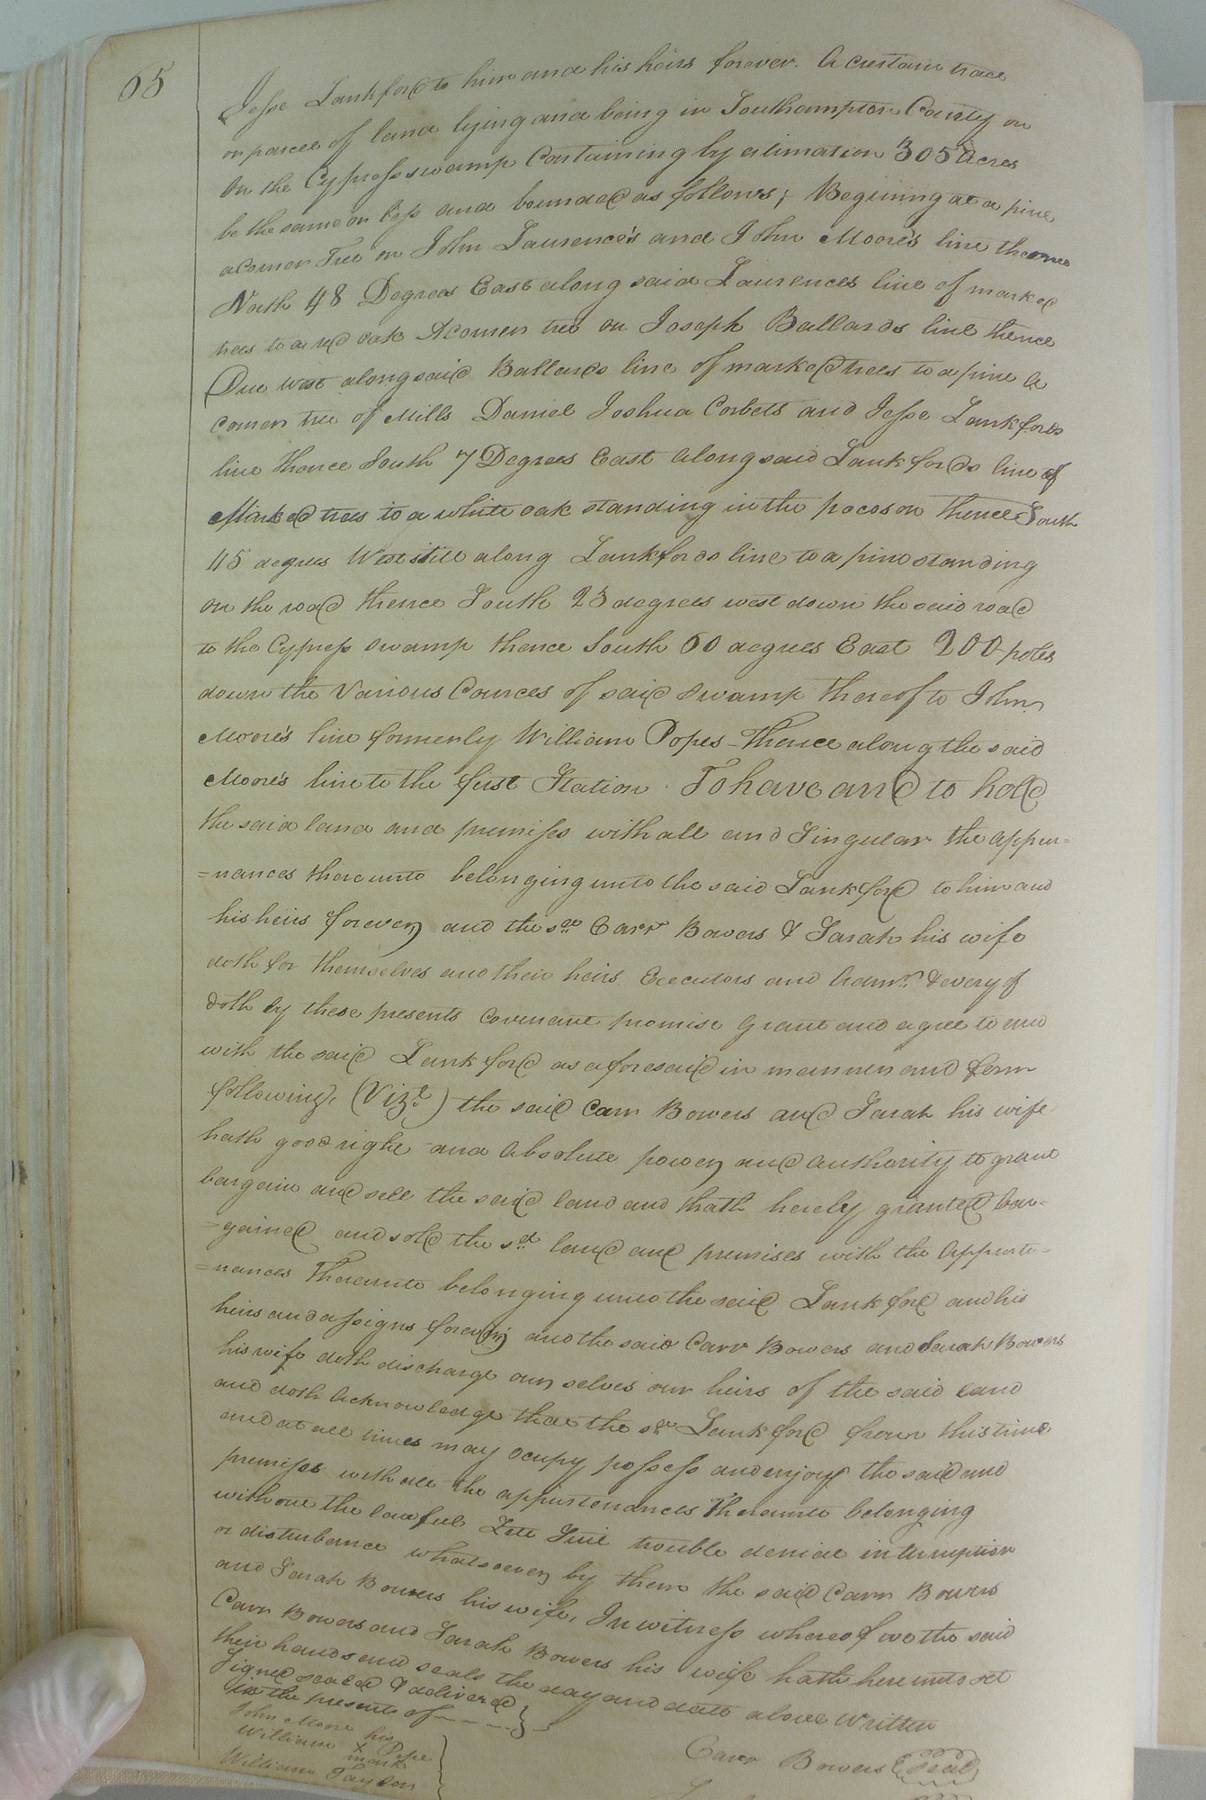 65
Jesse Lankford to him and his heirs forever. A certain trace
or parcel of land lying and being in Southampton County on
on the Cypress swamp Containing by estimation 305 Acres
be the same or less and bounded as follows; Begining at a pine
a Corner Tree on John Laurence's and John Moore's line thence
North 48 Degrees East along said Laurences line of marked
trees to a red oak A corner tree on Joseph Ballards line thence
Due west along said Ballards line of marked trees to a pine a
corner tree of Mills Daniel Joshua Corbets and Jesse Lankfords
line thence South 7 Degrees East along said Lankfords line of
Marked trees to a white oak standing in the pocoson thence South
45 degrees West still along Lankfords line to a pine standing
on the road thence South 23 degrees west down the said road
to the Cypress swamp thence South 60 degrees East 200 poles
down the Various Cources of said swamp thereof to John
Moore's line formerly William Popes - thence along the said
Moore's line to the first Station. To have and to hold
the said land and premises with all and Singular the appur=
=nances thereunto belonging unto the said Lankford to him and
his heirs forever and the sd. Carr Bowers & Sarah his wife
doth for themselves and their heirs Executors and Admrs. & every of
doth by these presents Covenant promise Grant and agree to and
with the said Lankford as aforesaid in manner and form
following, (Vizt.) the said Carr Bowers and Sarah his wife
hath good right and Absolute power and authority to grant
bargain and sell the said land and hath hereby granted bar=
=gained and sold the sd. land and premises with the Appurte=
=nances Thereunto belonging unto the said Lankford and his
heirs and assigns forever and the said Carr Bowers and Sarah Bowers
his wife doth discharge our selves our heirs of the said land
and doth Acknowledge that the sd. Lankford from this time
and at all times may ocupy possess and enjoy the said and
premises with all the appurtenances Thereunto belonging
without the lawful Lett Suit trouble denial interuption
or disturbance whatsoever by them the said Carr Bowers
and Sarah Bowers his wife, In witness whereof we the said
Carr Bowers and Sarah Bowers his wife hath hereunto set
their hands and seals the day and date above Written
Signed sealed & delivered
in the presents of
John Moore
his
William x Pope
mark
William Taylor
Carr Bowers Seal